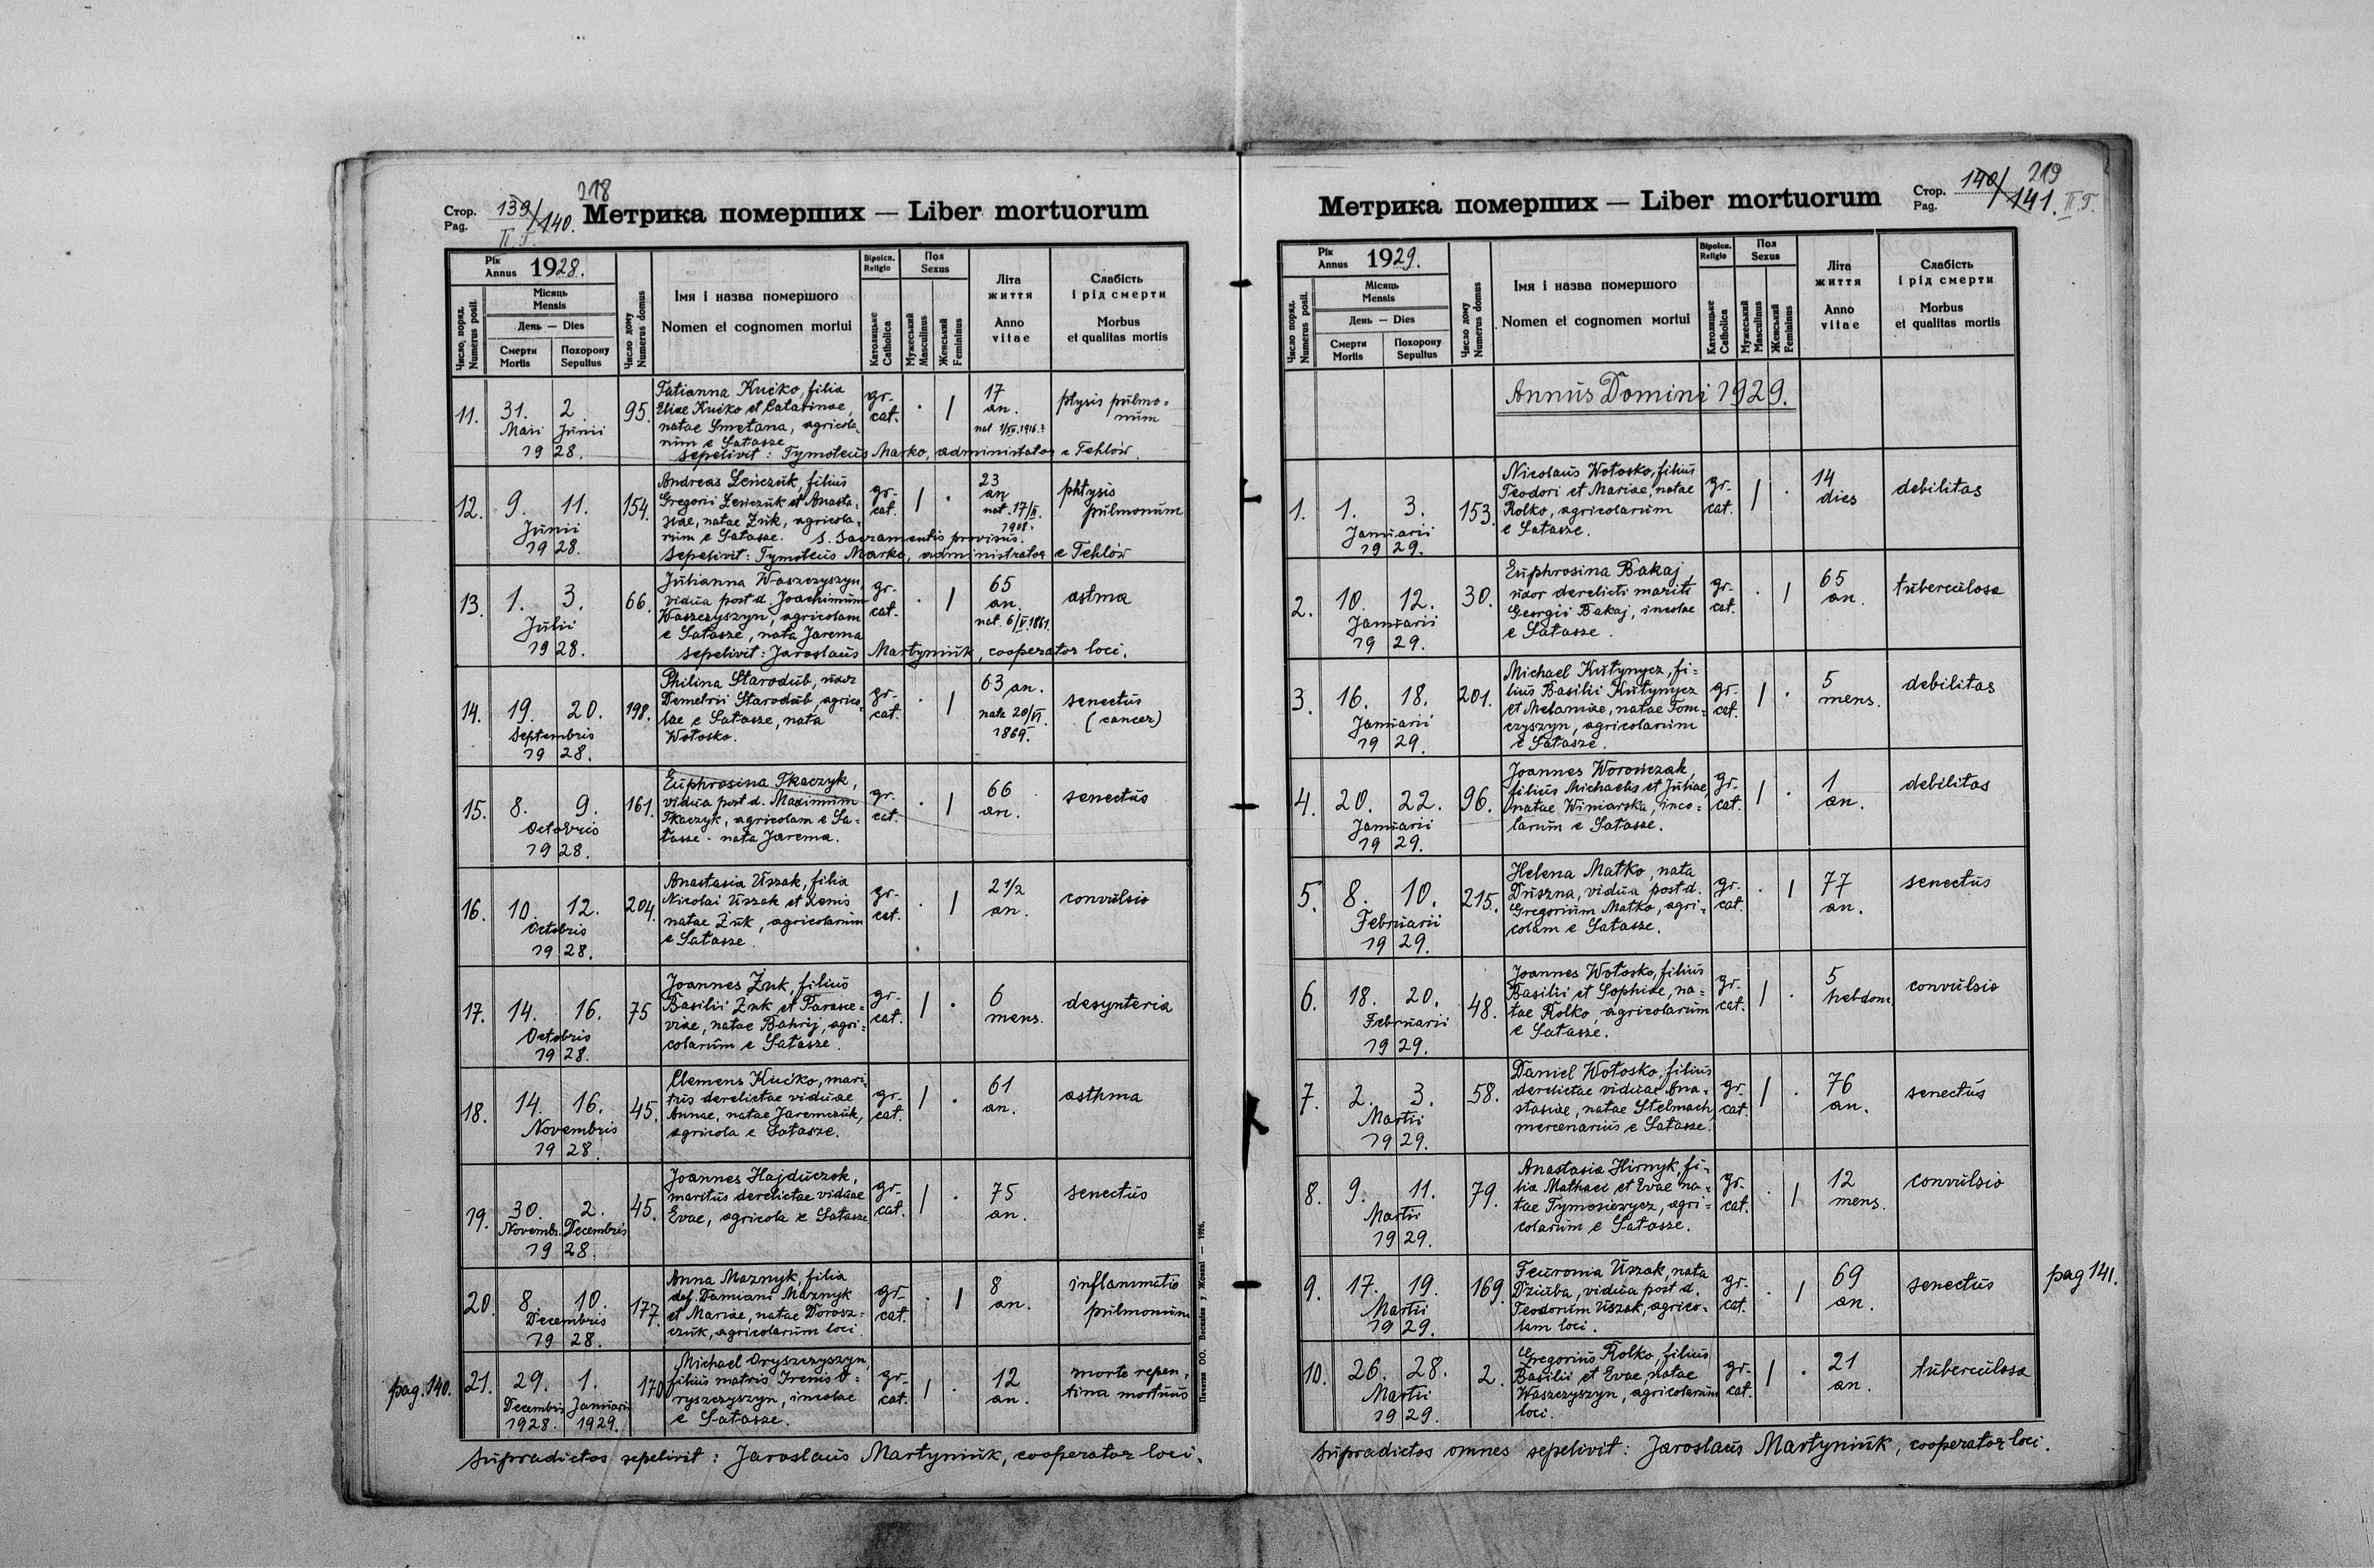 218
Стор. 139/140.
Pag.
II. T.
Метрика померших — Liber mortuorum
Рік
Annus 1928.
Число поряд.
Numerus posit.
Місяць
Mensis
День — Dies
Смерти
Mortis
Похорону
Sepultus
Число дому
Numerus domus
Імя і назва помершого
Nomen et cognomen mortui
Віроісп.
Religio
Католицьке
Catholica
Пол
Sexus
Мужеський
Masculinus
Женський
Femininus
Літа
життя
Anno
vitae
Слабість
і рід смерти
Morbus
et qualitas mortis
11. 31. Maii 2. Junii 1928. 95.
Tatianna Kućko, filia
Eliae Kućko et Catarinae,
natae Smetana, agricola-
rum e Sałasze
gr.-cat. · 1
17
an.
nat 1/XII.1916.?
ptysis pulmo-
num
sepelivit: Tymoteus Marko, administrator e Tehlów.
12. 9. 11. Junii 1928. 154.
Andreas Leńczuk, filius
Gregorii Leńczuk et Anasta-
siae, natae Żuk, agricola-
rum e Sałasze. S. Sacramentis provisus.
gr.-cat. 1 ·
23
an
nat. 17/II.
1908.
phtysis
pulmonum
sepelivit: Tymoteus Marko, administrator e Tehlów
13. 1. 3. Julii 1928. 66.
Julianna Waszczyszyn,
vidua post d. Joachimum
Waszczyszyn, agricolam
e Sałasze, nata Jarema
gr.-cat. · 1
65
an.
nat. 6/V.1861.
astma
sepelivit: Jaroslaus Martyniuk, cooperator loci.
14. 19. 20. Septembris 1928. 198.
Philina Starodub, uxor
Demetrii Starodub, agrico-
lae e Sałasze, nata
Wołosko.
gr.-cat. · 1
63 an.
nata 20/VI.
1869.
senectus
(cancer)
15. 8. 9. Octobris 1928. 161.
Euphrosina Tkaczyk,
vidua post d. Maximum
Tkaczyk, agricolam e Sa-
łasze - nata Jarema.
gr.-cat. · 1
66
an.
senectus
16. 10. 12. Octobris 1928. 204.
Anastasia Uszak, filia
Nicolai Uszak et Xenis
natae Żuk, agricolarum
e Sałasze.
gr.-cat. · 1
2 1/2
an.
convulsio
17. 14. 16. Octobris 1928. 75
Joannes Żuk, filius
Basilii Żuk et Parasce-
viae, natae Bahrij, agri-
colarum e Sałasze.
gr.-cat. 1 ·
6
mens.
desynteria
18. 14. 16. Novembris 1928. 45.
Clemens Kućko, mari-
tus derelictae viduae
Annae, natae Jaremczuk,
agricola e Sałasze.
gr.-cat. 1 ·
61
an.
asthma
19. 30. Novemb. 2. Decembris 1928. 45.
Joannes Hajduczok,
maritus derelictae viduae
Evae, agricola e Sałasze
gr.-cat. 1 ·
75
an.
senectus
20. 8. 10. Decembris 1928. 177.
Anna Maznyk, filia
def. Damiani Maznyk
et Mariae, natae Dorosz-
czuk, agricolarum loci.
gr.-cat. · 1
8
an.
inflammatio
pulmonum
pag. 140.
21. 29. Decembris 1928. 1. Januarii 1929. 170
Michael Oryszczyszyn,
filius matris Irenis O-
ryszczyszyn, incolae
e Sałasze.
gr.-cat. 1 ·
12
an.
morte repen-
tina mortuus
Supradictos sepelivit: Jaroslaus Martyniuk, cooperator loci.
Печатня ОО. Василіян у Жовкві — 1926.
Метрика померших — Liber mortuorum
219
Стор. 140/141. II T.
Pag.
Рік
Annus 1929.
Число поряд.
Numerus posit.
Місяць
Mensis
День — Dies
Смерти
Mortis
Похорону
Sepultus
Число дому
Numerus domus
Імя і назва помершого
Nomen et cognomen мortui
Віроісп.
Religio
Католицьке
Catholica
Пол
Sexus
Мужеський
Masculinus
Женський
Femininus
Літа
життя
Anno
vitae
Слабість
і рід смерти
Morbus
et qualitas mortis
Annus Domini 1929.
1. 1. 3. Januarii 1929. 153.
Nicolaus Wołosko, filius
Teodori et Mariae, natae
Rolko, agricolarum
e Sałasze.
gr.-cat. 1 ·
14
dies
debilitas
2. 10. 12. Januarii 1929. 30.
Euphrosina Bakaj
uxor derelicti mariti
Georgii Bakaj, incolae
e Sałasze.
gr.-cat. · 1
65
an.
tuberculosa
3. 16. 18. Januarii 1929. 201.
Michael Kutynycz, fi-
lius Basilii Kutynycz
et Melaniae, natae Tom-
czyszyn, agricolarum
e Sałasze.
gr.-cat. 1 ·
5
mens.
debilitas
4. 20. 22. Januarii 1929. 96.
Joannes Worończak,
filius Michaelis et Juliae,
natae Winiarska, inco-
larum e Sałasze.
gr.-cat. 1 ·
1
an.
debilitas
5. 8. 10. Februarii 1929. 215.
Helena Matko, nata
Duszna, vidua post d.
Gregorium Matko, agri-
colam e Sałasze.
gr.-cat. · 1
77
an.
senectus
6. 18. 20. Februarii 1929. 48.
Joannes Wołosko, filius
Basilii et Sophiae, na-
tae Rolko, agricolarum
e Sałasze.
gr.-cat. 1 ·
5
hebdom.
convulsio
7. 2. 3. Martii 1929. 58.
Daniel Wołosko, filius
derelictae viduae Ana-
stasiae, natae Stelmach
mercenarius e Sałasze.
gr.-cat. 1 ·
76
an.
senectus
8. 9. 11. Martii 1929. 79.
Anastasia Hirnyk, fi-
lia Mathaei et Evae na-
tae Tymosiewycz, agri-
colarum e Sałasze.
gr.-cat. · 1
12
mens.
convulsio
9. 17. 19. Martii 1929. 169.
Feuronia Uszak, nata
Dziuba, vidua post d.
Teodorum Uszak, agrico-
lam loci.
gr.-cat. · 1
69
an.
senectus
pag 141.
10. 26. 28. Martii 1929. 2.
Gregorius Rolko, filius
Basilii et Evae, natae
Waszczyszyn, agricolarum
loci.
gr.-cat. 1 ·
21
an.
tuberculosa
Supradictos omnes sepelivit: Jaroslaus Martyniuk, cooperator loci.